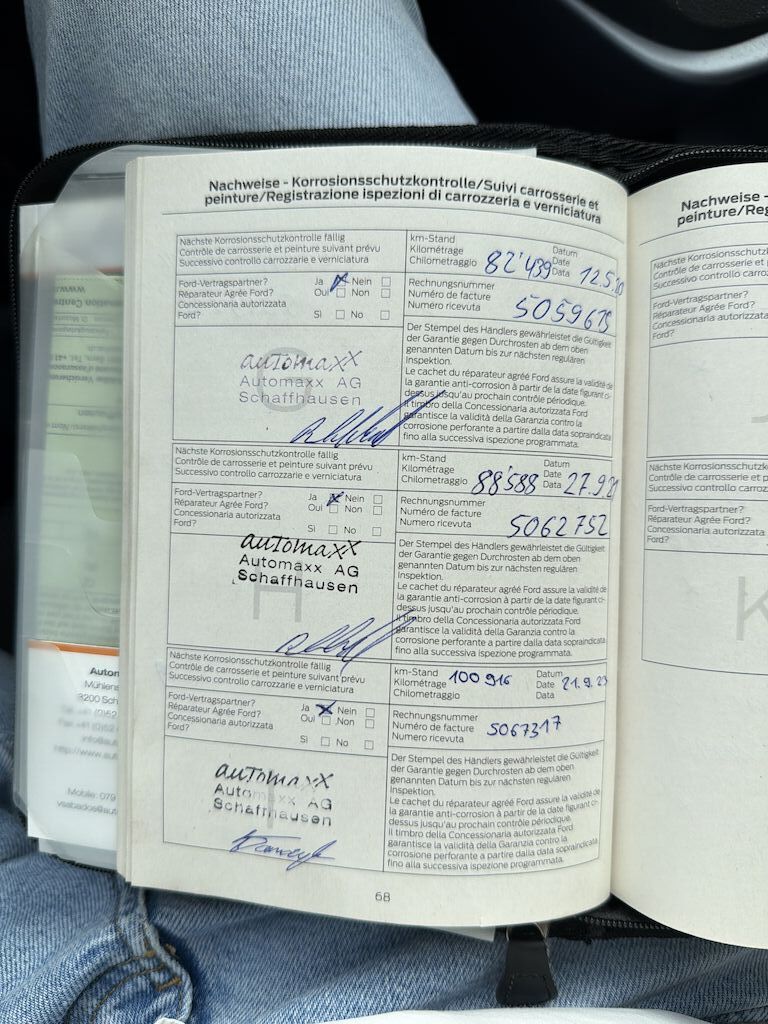 Nachweise - Korrosionsschutzkontrolle/Suivi carrosserie et
peinture/Registrazione ispezioni di carrozzeria e verniciatura
Nächste Korrosionsschutzkontrolle fällig
Contrôle de carrosserie et peinture suivant prévu
Successivo controllo carrozzarie e verniciatura
km-Stand
Kilométrage
Chilometraggio
82'439
Datum
Date
Data
12.5.
Ford-Vertragspartner?
Réparateur Agrée Ford?
Concessionaria autorizzata
Ford?
Ja Nein
Oui Non
Sì No
Rechnungsnummer
Numéro de facture
Numero ricevuta
G
automaxx
Automaxx AG
Schaffhausen
Der Stempel des Händlers gewährleistet die Gültigkeit
der Garantie gegen Durchrosten ab dem oben
genannten Datum bis zur nächsten regulären
Inspektion.
Le cachet du réparateur agréé Ford assure la validité de
la garantie anti-corrosion à partir de la date figurant ci-
dessus jusqu'au prochain contrôle périodique.
Il timbro della Concessionaria autorizzata Ford
garantisce la validità della Garanzia contro la
corrosione perforante a partire dalla data sopraindicata
fino alla successiva ispezione programmata.
Nächste Korrosionsschutzkontrolle fällig
Contrôle de carrosserie et peinture suivant prévu
Successivo controllo carrozzarie e verniciatura
km-Stand
Kilométrage
Chilometraggio
88'588
Datum
Date
Data
27.9.21
Ford-Vertragspartner?
Réparateur Agrée Ford?
Concessionaria autorizzata
Ford?
Ja Nein
Oui Non
Sì No
Rechnungsnummer
Numéro de facture
Numero ricevuta
5062752
H
automaxx
Automaxx AG
Schaffhausen
Der Stempel des Händlers gewährleistet die Gültigkeit
der Garantie gegen Durchrosten ab dem oben
genannten Datum bis zur nächsten regulären
Inspektion.
Le cachet du réparateur agréé Ford assure la validité de
la garantie anti-corrosion à partir de la date figurant ci-
dessus jusqu'au prochain contrôle périodique.
Il timbro della Concessionaria autorizzata Ford
garantisce la validità della Garanzia contro la
corrosione perforante a partire dalla data sopraindicata
fino alla successiva ispezione programmata.
Nächste Korrosionsschutzkontrolle fällig
Contrôle de carrosserie et peinture suivant prévu
Successivo controllo carrozzarie e verniciatura
km-Stand
Kilométrage
Chilometraggio
100916
Datum
Date
Data
21.9.23
Ford-Vertragspartner?
Réparateur Agrée Ford?
Concessionaria autorizzata
Ford?
Ja Nein
Oui Non
Sì No
Rechnungsnummer
Numéro de facture
Numero ricevuta
5067317
I
automaxx
Automaxx AG
Schaffhausen
Der Stempel des Händlers gewährleistet die Gültigkeit
der Garantie gegen Durchrosten ab dem oben
genannten Datum bis zur nächsten regulären
Inspektion.
Le cachet du réparateur agréé Ford assure la validité de
la garantie anti-corrosion à partir de la date figurant ci-
dessus jusqu'au prochain contrôle périodique.
Il timbro della Concessionaria autorizzata Ford
garantisce la validità della Garanzia contro la
corrosione perforante a partire dalla data sopraindicata
fino alla successiva ispezione programmata.
68
Nachweise -
peinture/Reg
Nächste Korrosionsschutzk
Contrôle de carrosserie et
Successivo controllo carroz
Ford-Vertragspartner?
Réparateur Agrée Ford?
Concessionaria autorizzata
Ford?
Nächste Korrosionsschutzk
Contrôle de carrosserie et
Successivo controllo carroz
Ford-Vertragspartner?
Réparateur Agrée Ford?
Concessionaria autorizzata
Ford?
K
Autom
Mühlens
8200 Sch
Mobile: 079